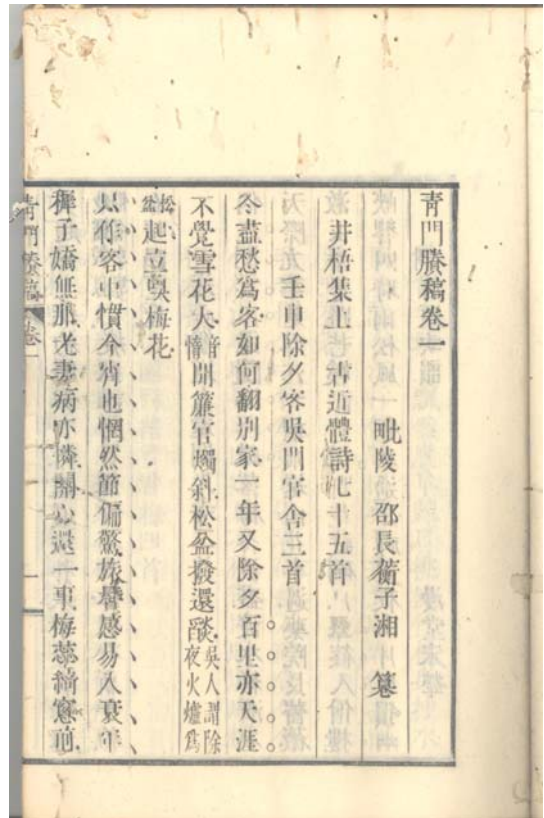 青門賸稿卷一
毗陵 邵長蘅子湘 篹
井梧集上 古近體詩七十五首
壬申除夕客吳門官舍三首
冬盡愁爲客如何翻別家一年又除夕百里亦天涯
不覺雪花大愔愔閒簾官燭斜松盆撥還燄吳人謂除夜火爐爲
松盆起立嗅梅花
只作客中慣今宵也惘然節偏驚旅鬢感易入衰年
穉子嬌無賴老妻病亦憐關心還一事梅蕊綺窻前
青門賸稿 卷一 一